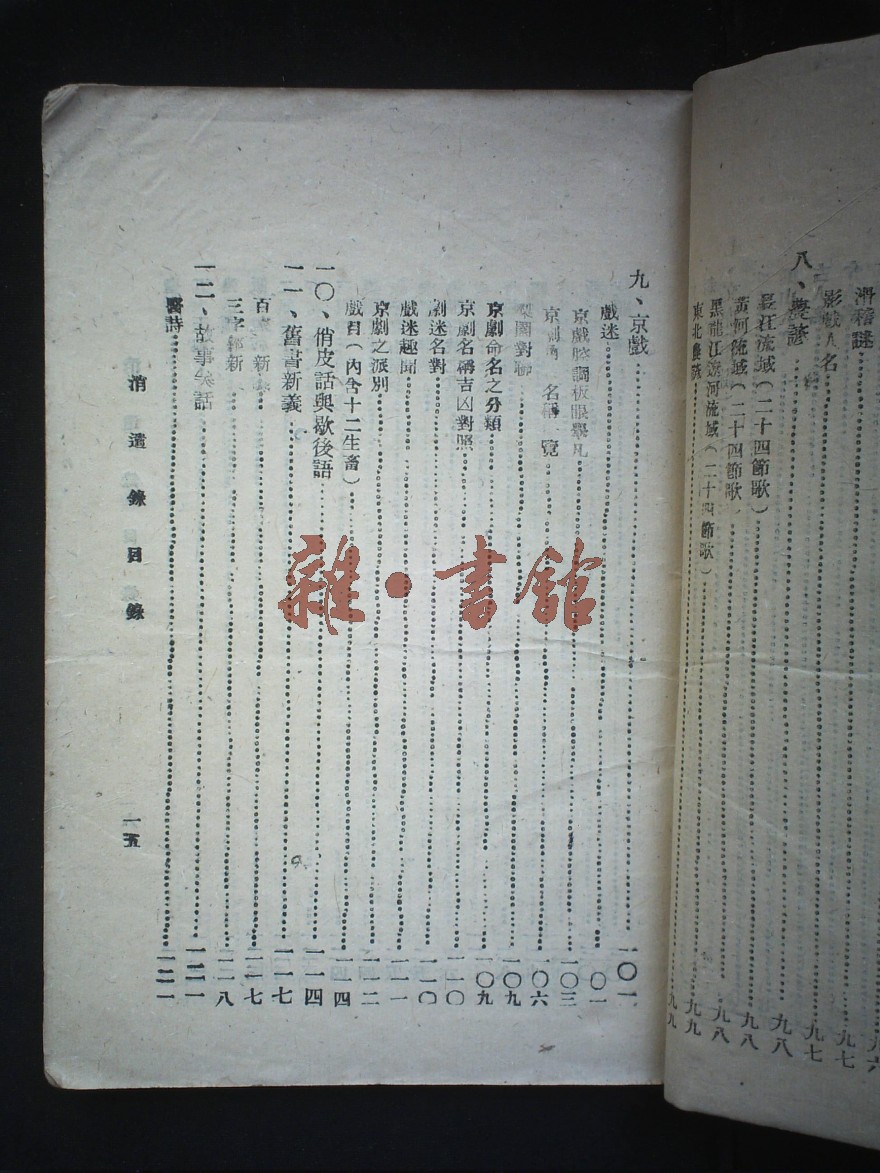 滑稽謎……九六
影戲人名……九七
八、農諺……九七
長江流域(二十四節歌)……九八
黃河流域(二十四節歌)……九八
黑龍江流域(二十四節歌)……九八
東北農諺……九九
九、京戲……一〇一
戲迷……一〇一
京戲腔調板眼舉凡……一〇三
京劇 名稱 覽……一〇六
梨園對聯……一〇九
京劇命名之分類……一〇九
京劇名稱吉凶對照……一一〇
劇迷名對……一一〇
戲迷趣聞……一一一
京劇之派別……一一二
戲目(內含十二生畜)……一一四
一〇、俏皮話與歇後語……一一四
一一、舊書新義……一一七
百 新……一一七
三字經新……一一八
一二、故事笑話……一二一
醫詩……一二一
消遣錄目錄 一五
雜·書館